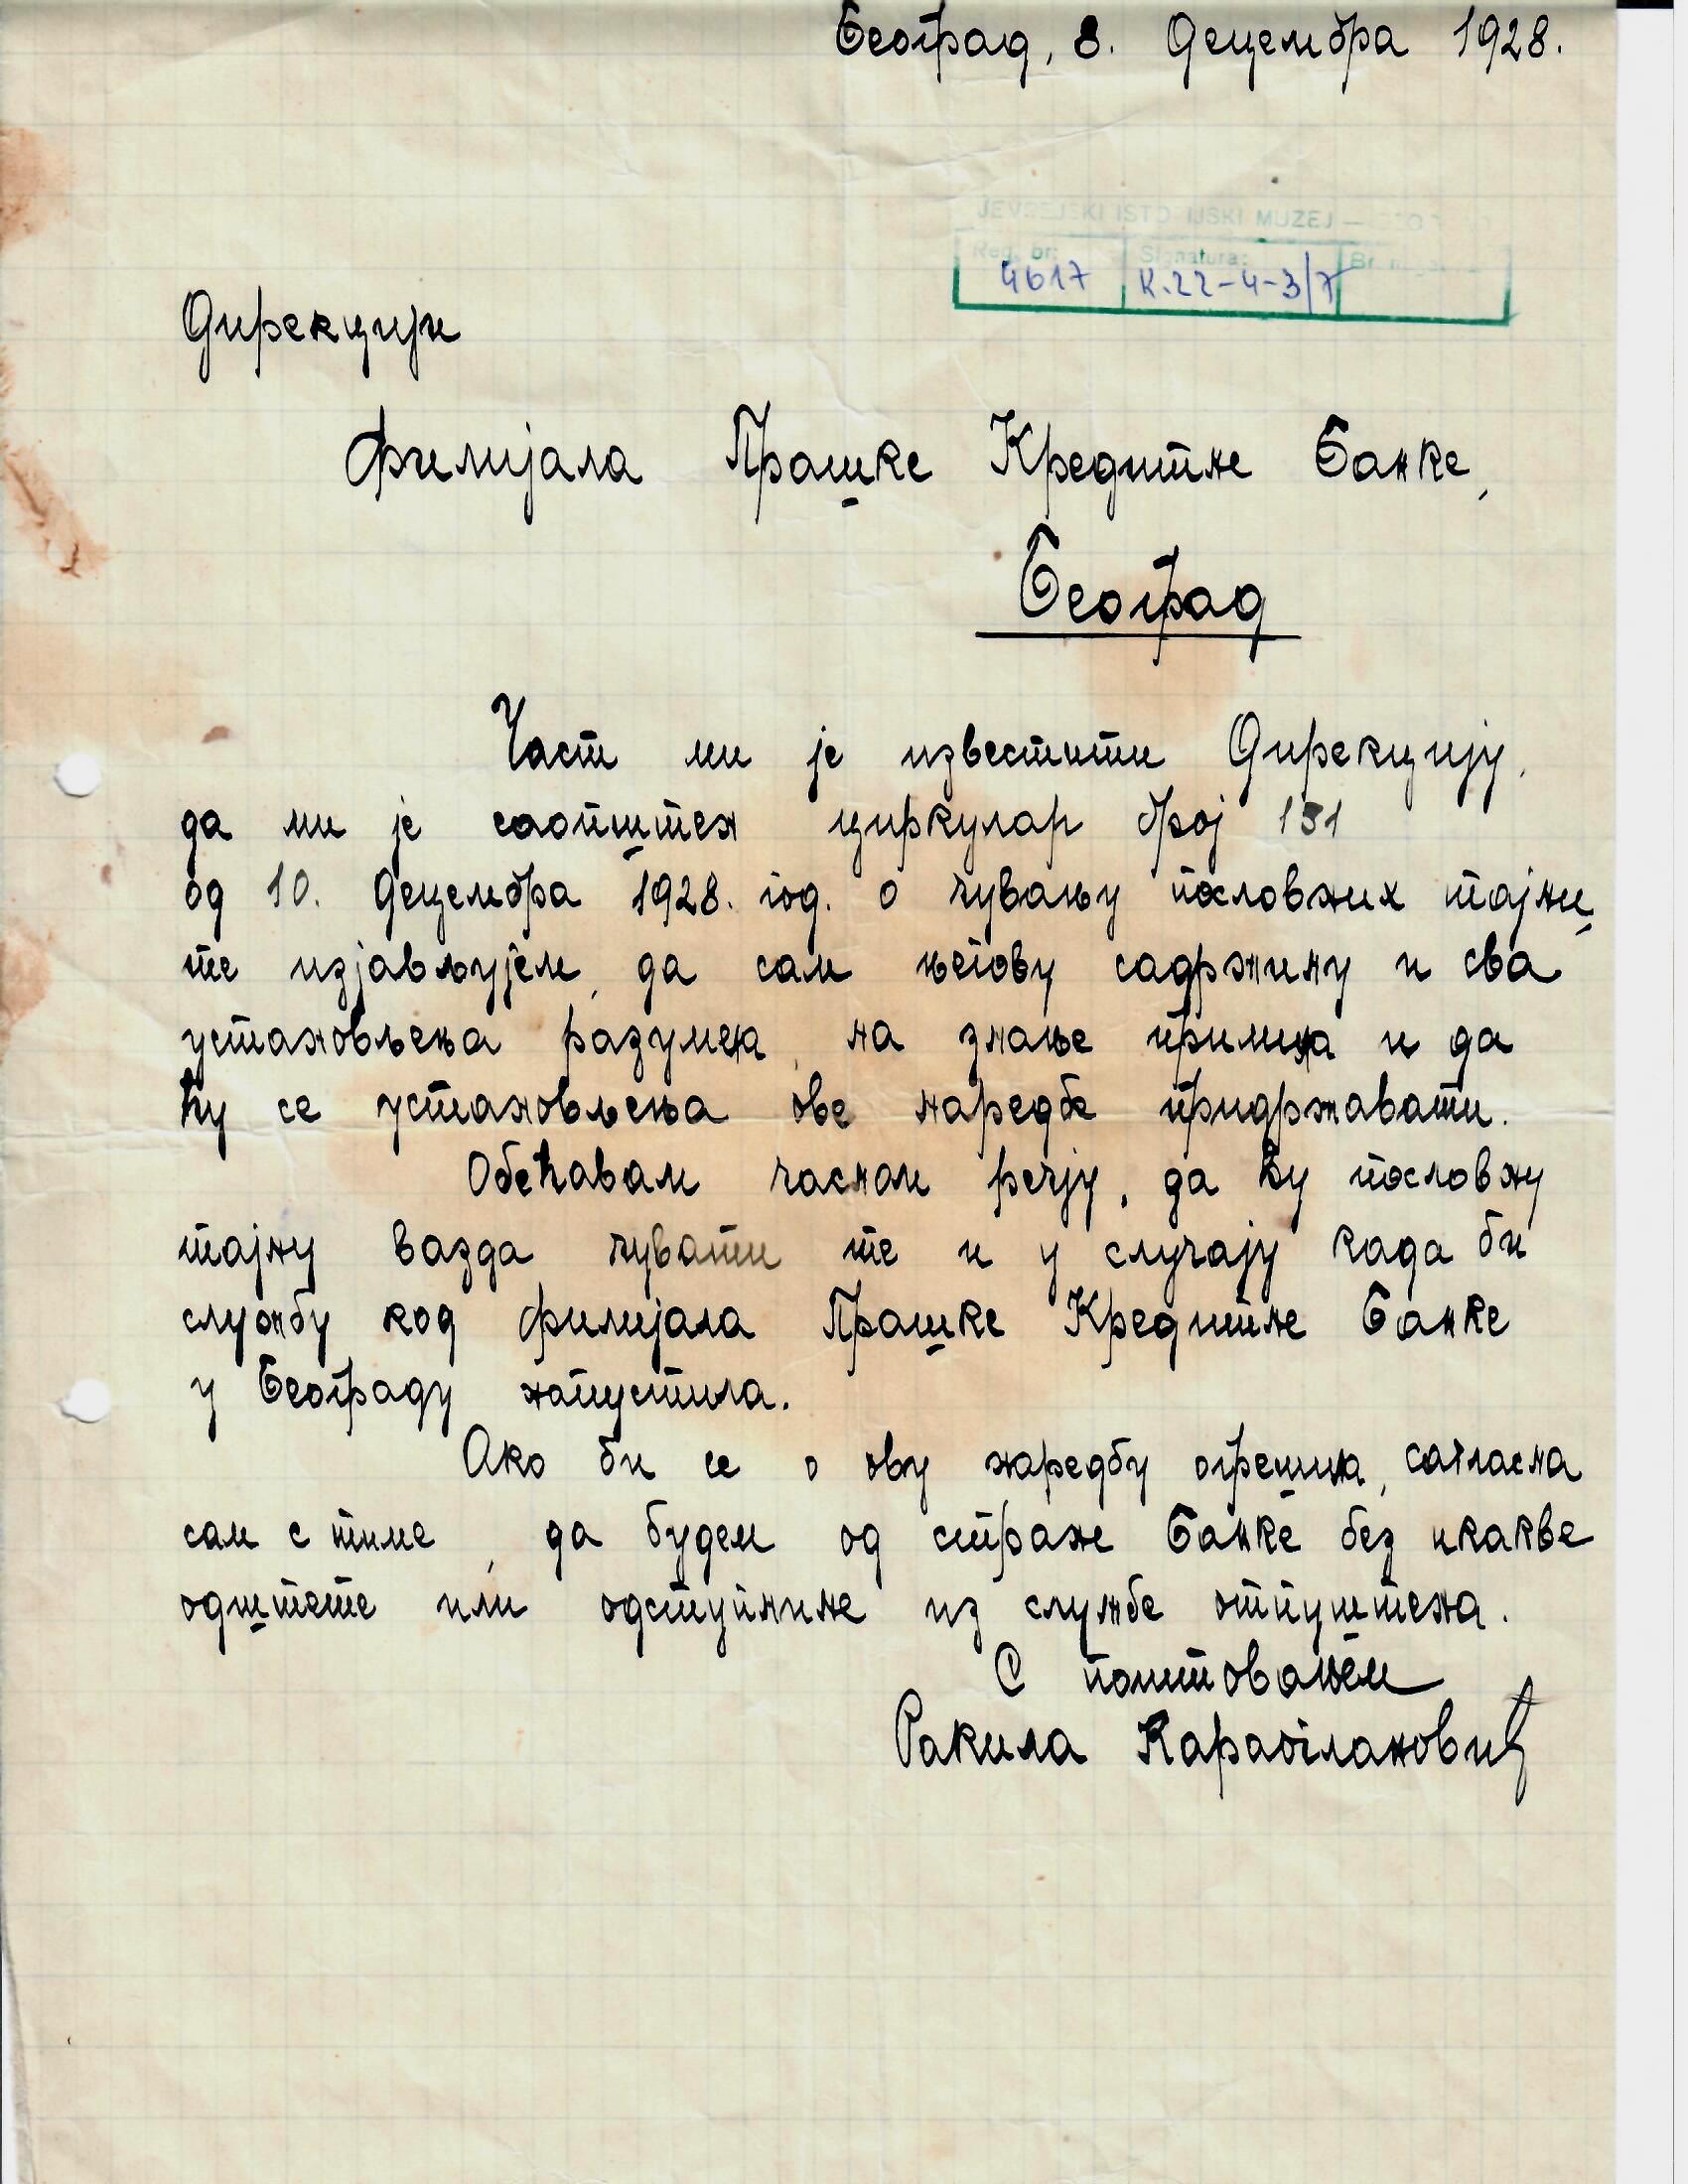 Београд, 8. Децембра 1928.
JEVREJSKI ISTORIJSKI MUZEJ —
Reg. br. Signatura:
4617 K.22-4-3/7
Дирекцији
Филијала Прашке Кредитне Банке,
Београд
Част ми је известити Дирекцију,
да ми је саопштен циркулар број 131
од 10. Децембра 1928. год. о чувању пословних тајни
те изјављујем, да сам његову садржину и сва
установљења разумела, на знање примила и да
ћу се установљења ове наредбе придржавати.
Обећавам часном речју, да ћу пословну
тајну вазда чувати те и у случају када би
службу код Филијала Прашке Кредитне Банке
у Београду напустила.
Ако би се о ову наредбу огрешила, сагласна
сам с тиме, да будем од стране Банке без икакве
одштете или одступнине из службе отпуштена.
С поштовањем
Ракила